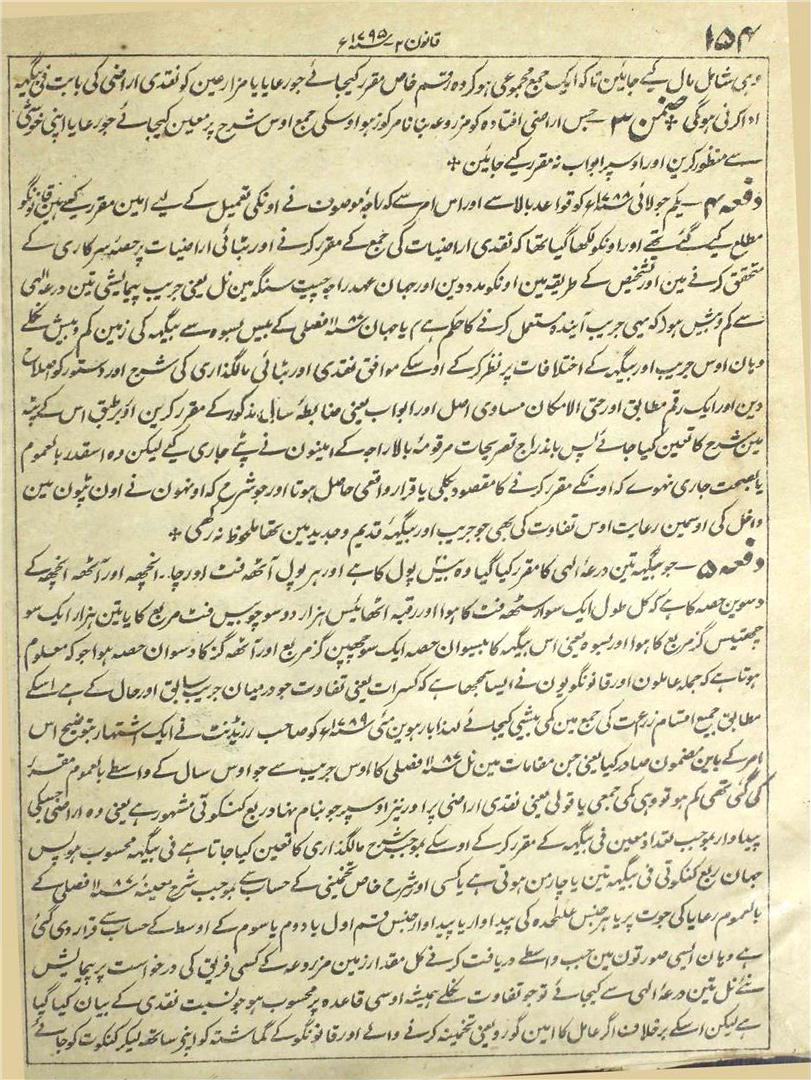 ۱۵۴
قانون ۲ ـ ۱۷۹۵ء
وہی شامل مال کیے جائین تاکہ ایک جمع مجموعی ہوکر وہ رقم خاص مقرر کیجائے جو رعایا یا مزارعین کو نقدی اراضی کی بابت فی بیگہہ
ادا کرنی ہوگی ٭ ضمن ۳ ـ جس اراضی افتادہ کو مزروعہ بنانا مرکوز ہو اوسکی جمع اوس شرح پر معین کیجائے جو رعایا اپنی خوشی
سے منظور کرین اور اوسپر ابواب نہ مقرر کیے جائین ٭
دفعہ ۴ ـ یکم جولائی ۱۷۸۸ء کو قواعد بالا سے اور اس امر سے کہ راجۂ موصوف نے اونکی تعمیل کے لیے امین مقرر کیے ہین قانونگو
مطلع کیے گئے تھے اور اونکو لکھا گیا تھا کہ نقدی اراضیات کی جمع کے مقرر کرنے اور بٹائی اراضیات پر حصۂ سرکاری کے
متحقق کرنے مین اور تشخیص کے طریقہ مین اونکو مدد دین اور جہان عہد راجہ چیت سنگہ مین نل یعنی جریب پیمایشی تین درعہ الٰہی
سے کم و بیش ہو (کہ یہی جریب آیندہ مستعمل کرنے کا حکم ہے) یا جہان ۱۱۸۷ فصلی کے بیس بسوہ سے بیگہہ کی زمین کم و بیش نکلے
وہان اوس جریب اور بیگہہ کے اختلافات پر نظر کرکے اوسکے موافق نقدی اور بٹائی مالگذاری کی شرح اور دستور کو اصلاح
دین اور ایک رقم مطابق اور حتی الامکان مساوی اصل اور ابواب یعنی ضابطۂ سابل مذکور کے مقرر کرین اور بطبق اس کے پٹہ
مین شرح کا تعین کیا جائے پس باندراج تصریحات مرقومۂ بالا راجہ کے امینون نے پٹے جاری کیے لیکن وہ اسقدر بالعموم
یا بصحت جاری نہوے کہ اونکے مقرر کرنے کا مقصود بکلی یا قرار واقعی حاصل ہوتا اور جو شرح کہ اونہون نے اون پٹون مین
داخل کی اوسمین رعایت اوس تفاوت کی بھی جو جریب اور بیگہۂ قدیم و جدید مین تھا ملحوظ نہ رکھی ٭
دفعہ ۵ ـ جو بیگہہ تین درعۂ الٰہی کا مقرر کیا گیا وہ بیس پول کا ہے اور ہر پول آٹھہ فٹ اور چار انچھہ اور آٹھہ انچھہ کے
دسوین حصہ کا ہے کہ کل طول ایک سو اڑسٹھہ فٹ کا ہوا اور رقبہ اٹھائیس ہزار دو سو چوبیس فٹ مربع کا یا تین ہزار ایک سو
چھتیس گز مربع کا ہوا اور بسوہ یعنی اس بیگہہ کا بیسوان حصہ ایک سو چھپن گز مربع اور آٹھہ گز کا دسوان حصہ ہوا جو کہ معلوم
ہوتا ہے کہ جملہ عاملون اور قانونگویون نے ایسا سمجھا ہے کہ کسرات یعنی تفاوت جو درمیان جریب سابق اور حال کے ہے اسکے
مطابق جمیع اقسام زراعت کی جمع مین کمی بیشی کیجائے لہذا بارہوین مئی ۱۷۸۹ء کو صاحب رزیڈنٹ نے ایک اشتہار بتوضیح اس
امر کے باین مضمون صادر کیا یعنی جن مقامات مین نل ۱۱۸۷ فصلی کا اوس جریب سے جو اوس سال کے واسطے بالعموم مقرر
کی گئی تھی کم ہو تو وہی کمی جمعی یا قولی یعنی نقدی اراضی پر اور نیز اوسپر جو بنام نہاد ریع کنکوتی مشہور ہے یعنی وہ اراضی جسکی
پیداوار بموجب تعداد معین فی بیگہہ کے مقرر کرکے اوسکے بموجب شرح مالگذاری کا تعین کیا جاتا ہے فی بیگہہ محسوب ہو پس
جہان ریع کنکوتی فی بیگہہ تین یا چار من ہوتی ہے یا کسی اور شرح خاص تخمینی کے حساب سے بموجب شرح معینۂ ۱۱۸۷ فصلی کے
بالعموم رعایا کی جوت پر یا ہر جنس علٰحدہ کی پیداوار یا پیداوار جنس قسم اول یا دوم یا سوم کے اوسط کے حساب سے قرار دی گئی
ہے وہان ایسی صورتون مین جب واسطے دریافت کرنے کل مقدار زمین مزروعہ کے کسی فریق کی درخواست پر پیمایش
نئے نل تین درعۂ الٰہی سے کیجائے تو جو تفاوت نکلے ہمیشہ اوسی قاعدہ پر محسوب ہو جو نسبت نقدی کے بیان کیا گیا
ہے لیکن اسکے برخلاف اگر عامل کا امین گورو یعنی تخمینہ کرنے والے اور قانونگو کے گماشتہ کو اپنے ساتھہ لیکر کنکوت کو جائے